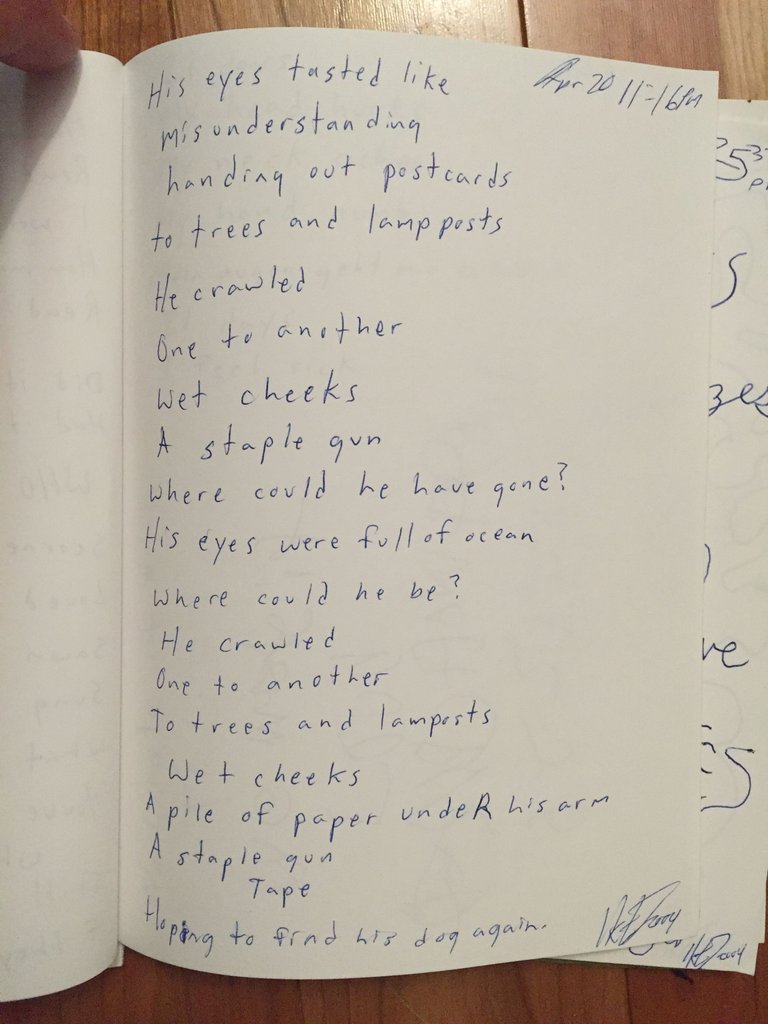 His eyes tasted like
Apr 20 11:16pm
misunderstanding
handing out postcards
to trees and lampposts
He crawled
One to another
Wet cheeks
A staple gun
Where could he have gone?
His eyes were full of ocean
Where could he be?
He crawled
One to another
To trees and lamposts
Wet cheeks
A pile of paper undeR his arm
A staple gun
Tape
Hoping to find his dog again.